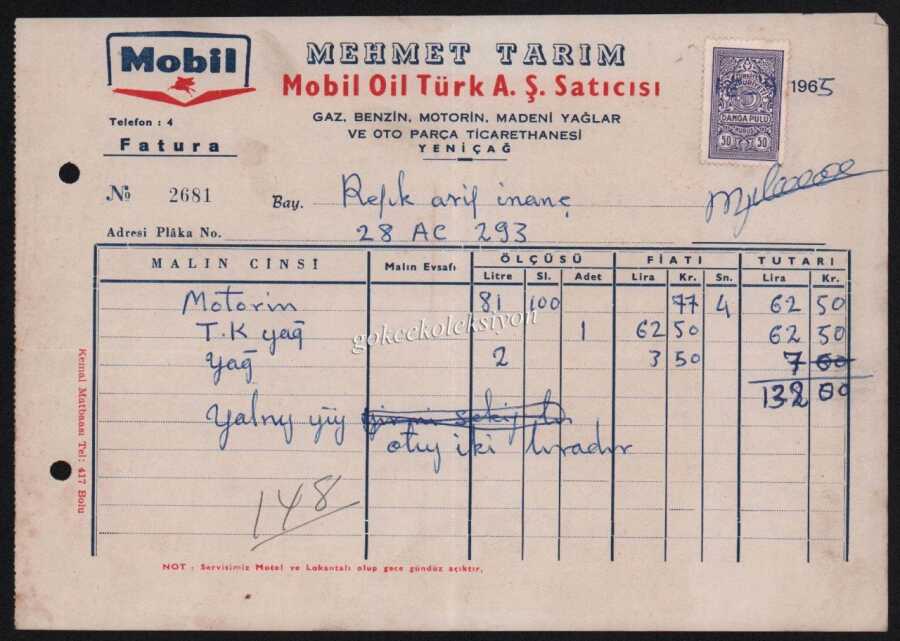 Mobil
MEHMET TARIM
Mobil Oil Türk A. Ş. Satıcısı
GAZ, BENZİN, MOTORİN, MADENİ YAĞLAR
VE OTO PARÇA TİCARETHANESİ
YENİÇAĞ
Telefon : 4
Fatura
DAMGA PULU
50 50
1965
№ 2681 Bay. Refik arif inanç
Adresi Plâka No. 28 AC 293
MALIN CİNSİ Malın Evsafı ÖLÇÜSÜ FİATI TUTARI
Litre Sl. Adet Lira Kr. Sn. Lira Kr.
Motorin 81 100 77 4 62 50
T.K yağ 1 62 50 62 50
yağ 2 3 50 7 00
132 00
yalnız yüz
otuz iki liradır
148
gokcekoleksiyon
NOT : Servisimiz Motel ve Lokantalı olup gece gündüz açıktır,
Kemal Matbaası Tel: 417 Bolu